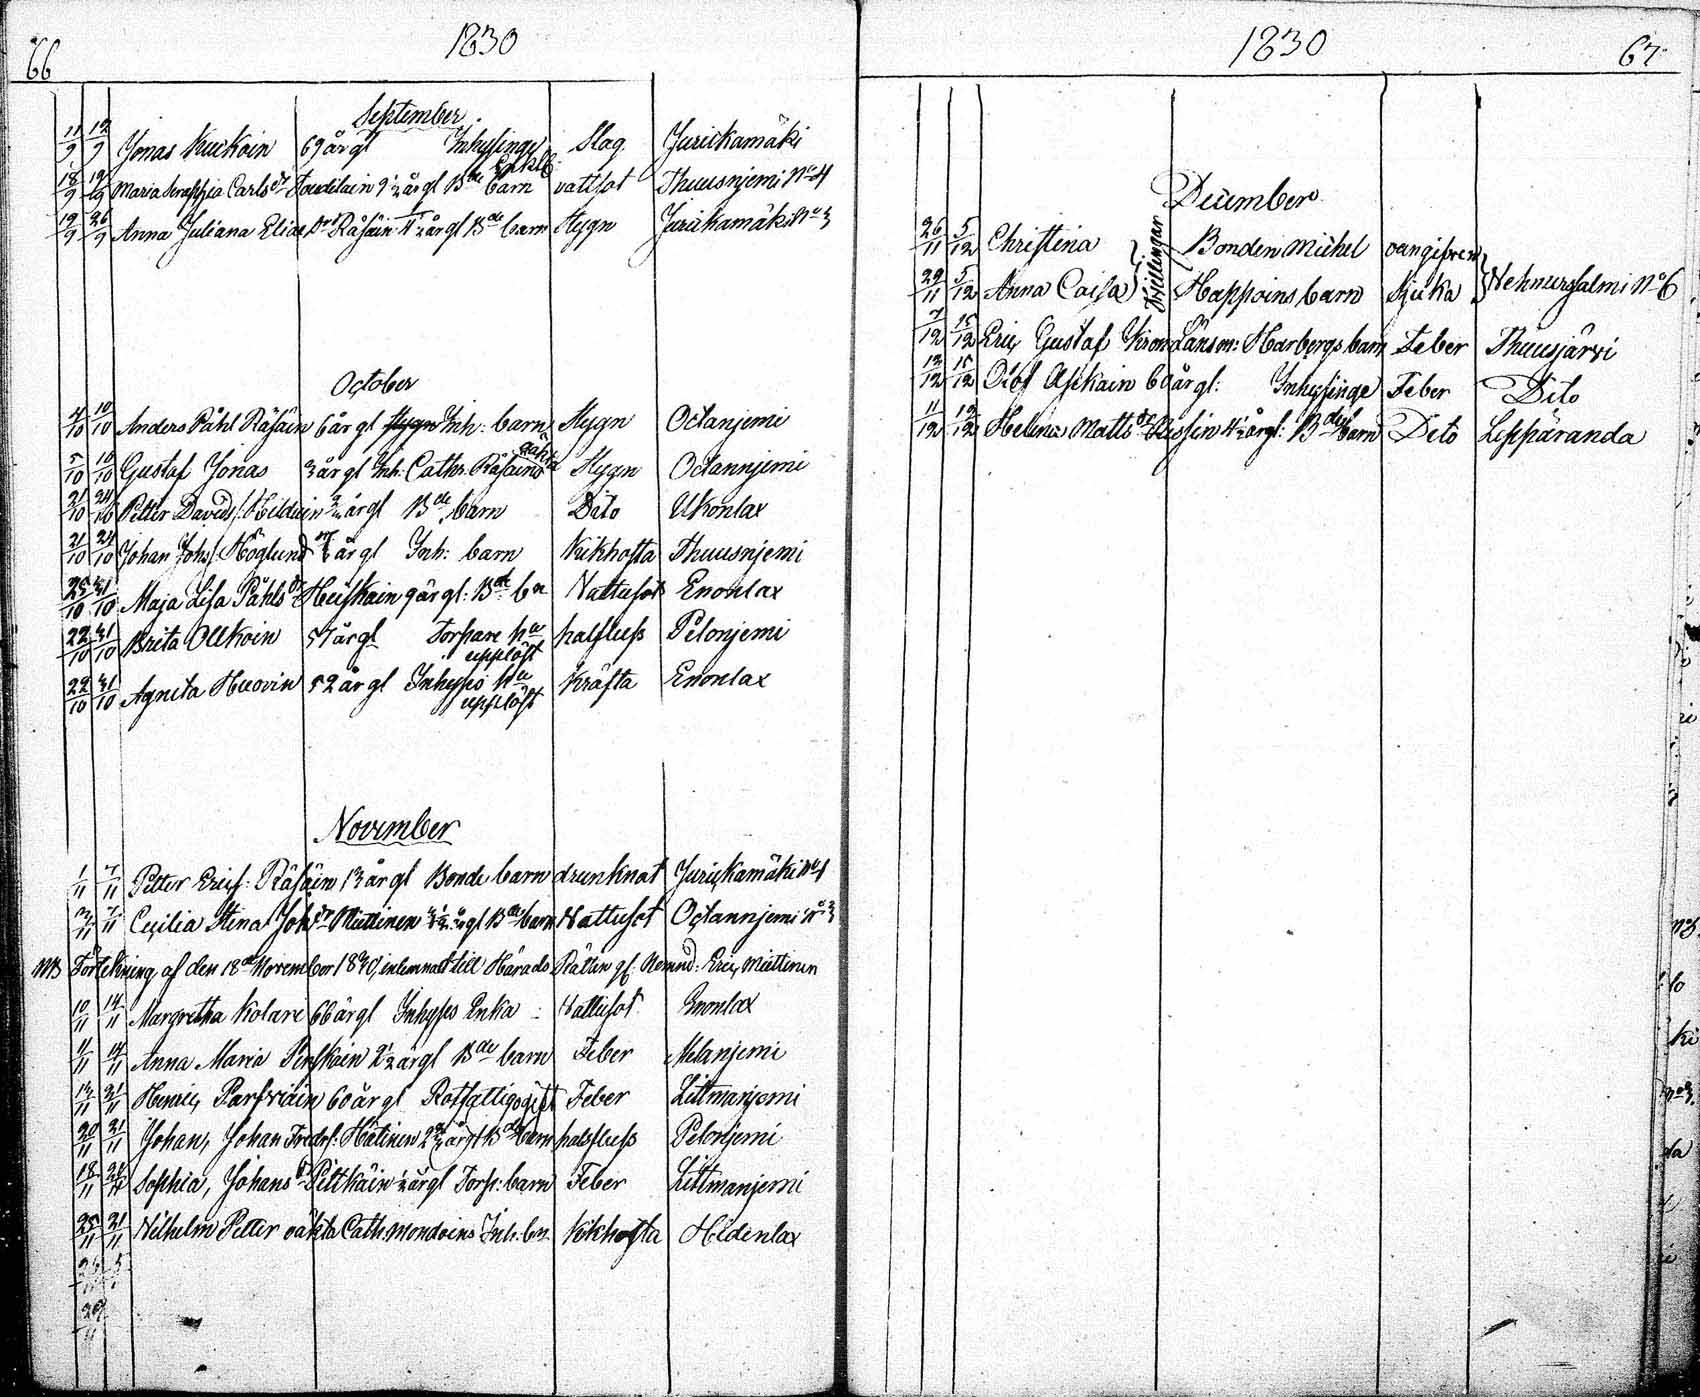 66
1830
September
11/9 12/9 Jonas Kuckoin 69 årgl Inhysinge Enkl: Slag Jurickamäki
18/9 19/9 Maria Seraphia Carls dr Toudilain 9 1/2 årgl Bde barn vattsot Thuusnjemi No 4
19/9 26/9 Anna Juliana Elias Dr Räsäin 4 1/2 årgl Bde barn Stygn Jurickamäki No 3
October
4/10 10/10 Anders Påhl Räsäin 6 årgl Inh: barn Stygn Octanjemi
5/10 10/10 Gustaf Jonas 3 årgl Inh: Cathr. Räsäins oäkta Stygn Octannjemi
21/10 24/10 Petter Davids: Hilduin årgl Bde barn Dito Ukonlax
21/10 24/10 Johan Johs: Höglund årgl Inh: barn Kikhosta Thuusnjemi
25/10 31/10 Maja Lisa Påhls dr Heiskain 9 årgl: Bde bn Vattusot Enonlax
22/10 31/10 Brita Ollikoin 57 årgl Torpare hu upplöst halsfluss Pelonjemi
22/10 31/10 Agneta Huovin 52 årgl Inhyses Hu upplöst Kräfta Enonlax
November
1/11 7/11 Petter Erics: Räsäin 13 årgl Bonde barn drunknat Jurickamäki No 4
3/11 7/11 Cecilia Stina Joh dr Miettinen årgl Bde barn Vattusot Octannjemi No 3
NB Förtekning af den 18de November 1830, inlemnad till Härads Rätten gf. Nemnd: Eric Miettinen
10/11 14/11 Margretha Kolare 66 årgl Inhyses Enka Vattusot Enonlax
11/11 14/11 Anna Maria Penskain 2 1/2 årgl Bde barn Feber Melanjemi
13/11 21/11 Henric Parfviain 60 årgl Rotfattig ogift Feber Littmanjemi
20/11 21/11 Johan, Johan Fredrs: Hätinen årgl Bde barn halsfluss Pelonjemi
18/11 21/11 Sophia, Johans dr Pitkäin 1/2 årgl Torp: barn Feber Littmanjemi
25/11 21/11 Vilhelm Petter oäkta Cath: Mondoins Inh: bn Kikhosta Hidenlax
26/11 5
29/11
1830
67
December
26/11 5/12 Christina Tvillingar Bonden Michel oangifven
29/11 5/12 Anna Caisa Happoins barn Sjuka Vehnursalmi No 6
7/12 15/12 Eric Gustaf Kron Länsm: Harbergs barn Feber Thuusjärvi
13/12 15/12 Olof Asikain 60 årgl: Inhysinge Feber Dito
11/12 12/12 Helena Matts dr Assin 4 1/2 årgl: Bde barn Dito Leppäranda